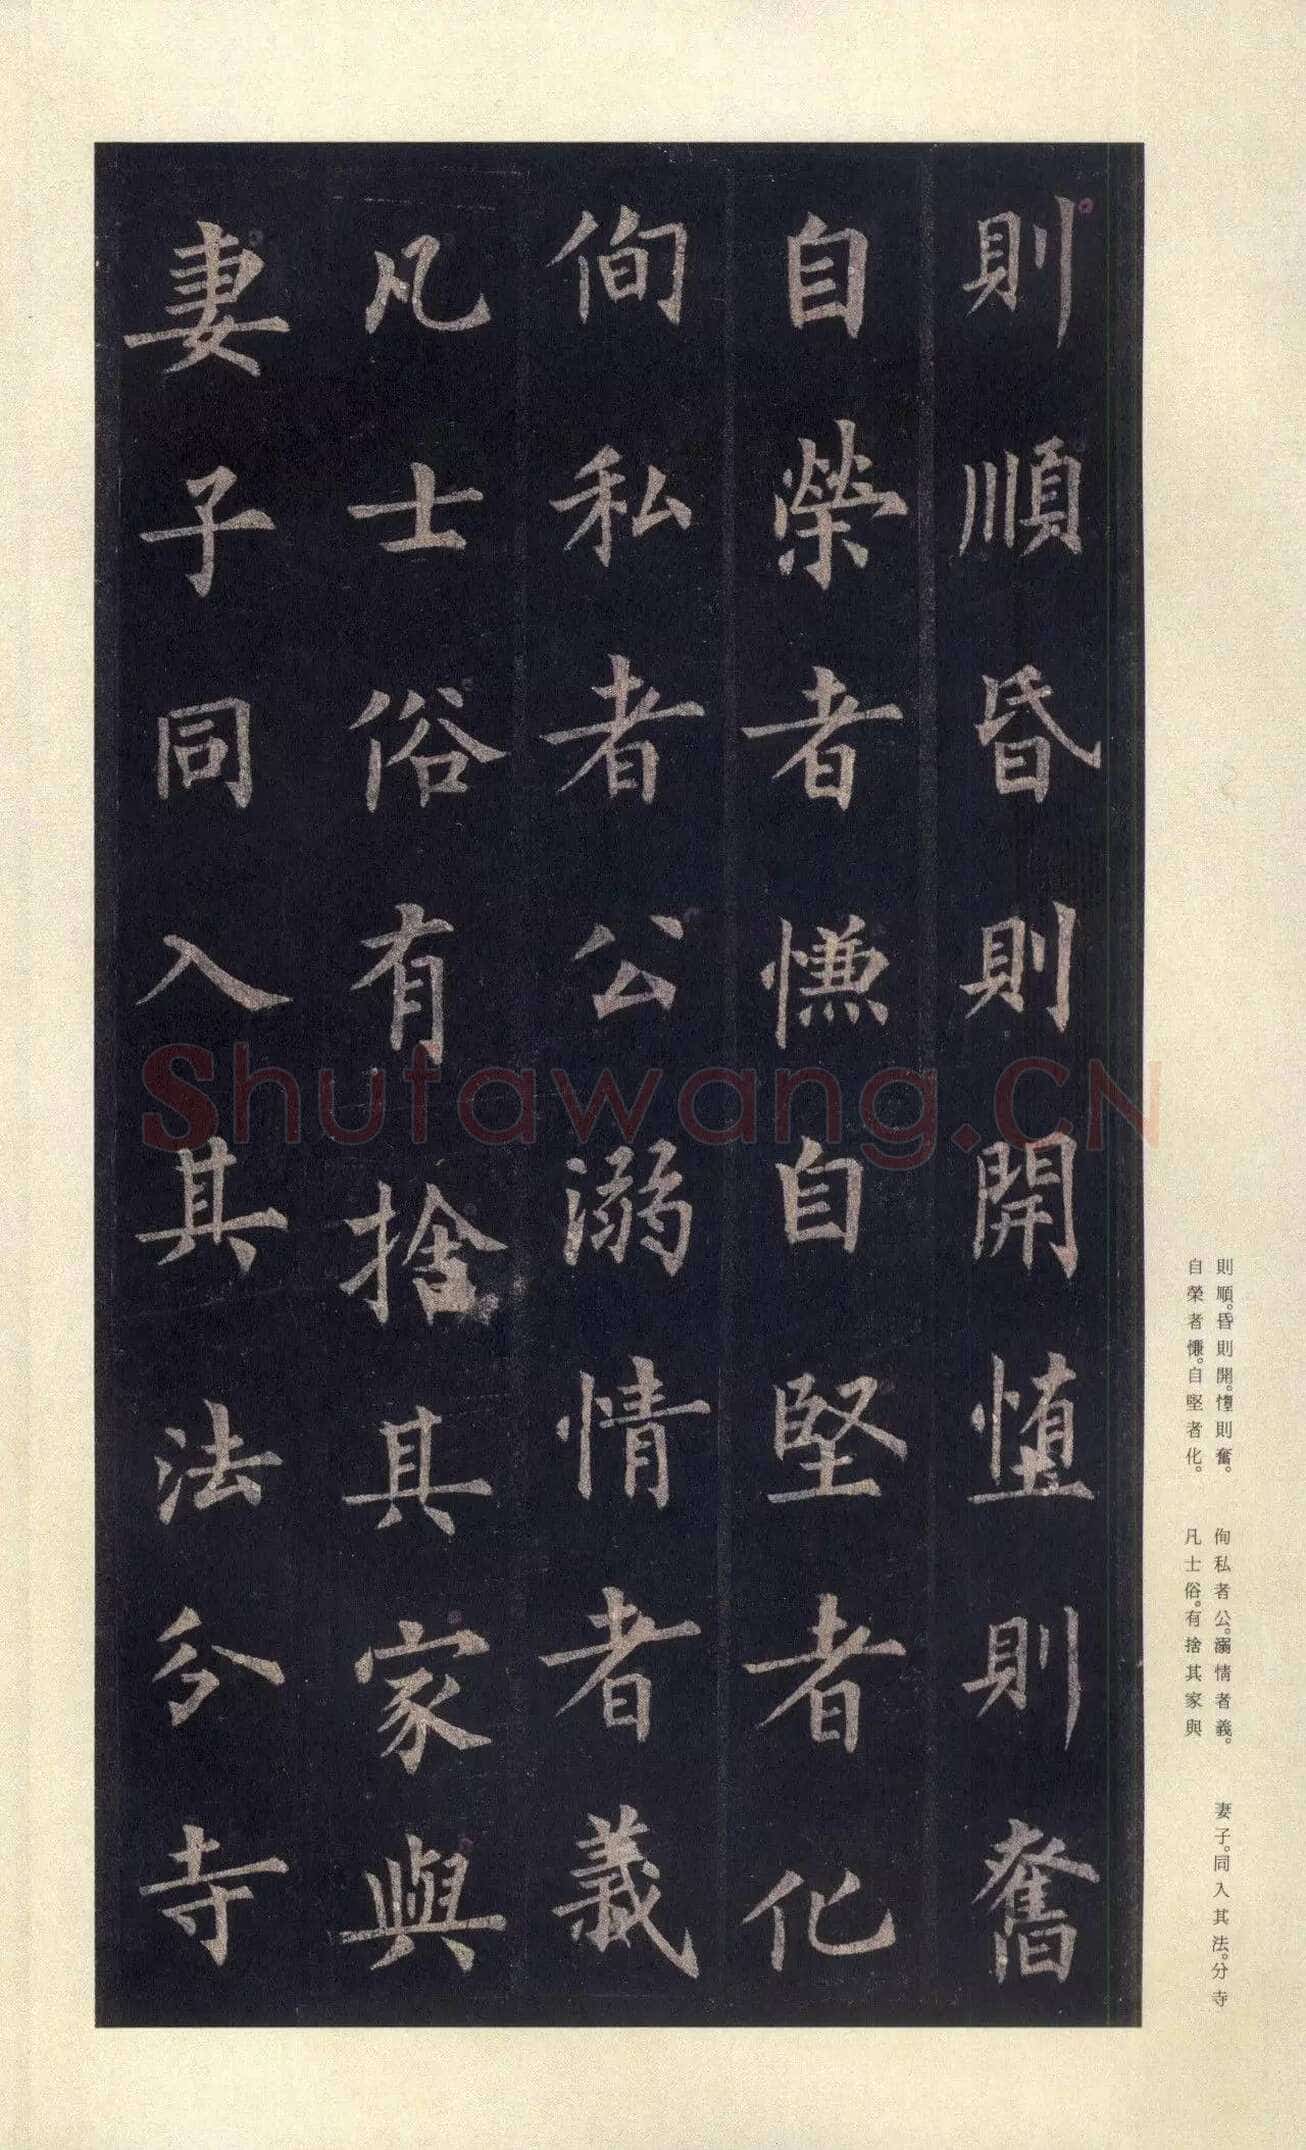 則順昏則開憻則奮
自榮者慊自堅者化
侚私者公溺情者義
凡士俗有捨其家與
妻子同入其法分寺
Shufawang.CN
則順。昏則開。憻則奮。
自榮者慊。自堅者化。
侚私者公。溺情者義。
凡士俗。有捨其家與
妻子。同入其法。分寺